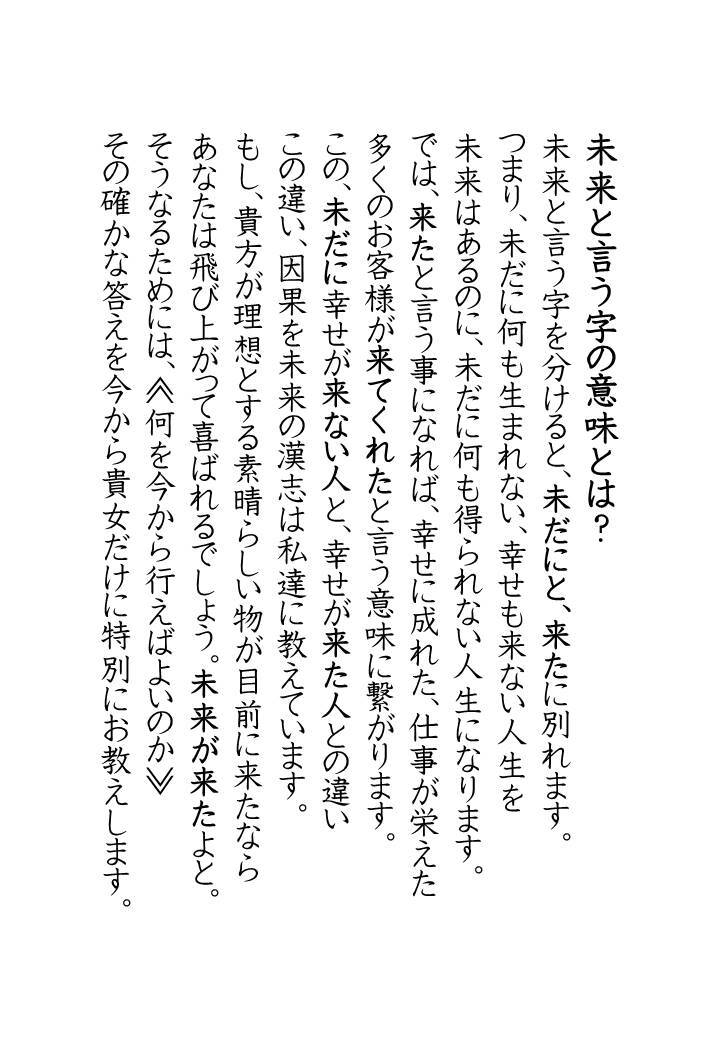 未来と言う字の意味とは？
未来と言う字を分けると、未だにと、来たに別れます。
つまり、未だに何も生まれない、幸せも来ない人生を
未来はあるのに、未だに何も得られない人生になります。
では、来たと言う事になれば、幸せに成れた、仕事が栄えた
多くのお客様が来てくれたと言う意味に繋がります。
この、未だに幸せが来ない人と、幸せが来た人との違い
この違い、因果を未来の漢志は私達に教えています。
もし、貴方が理想とする素晴らしい物が目前に来たなら
あなたは飛び上がって喜ばれるでしょう。未来が来たよと。
そうなるためには、≪何を今から行えばよいのか≫
その確かな答えを今から貴女だけに特別にお教えします。